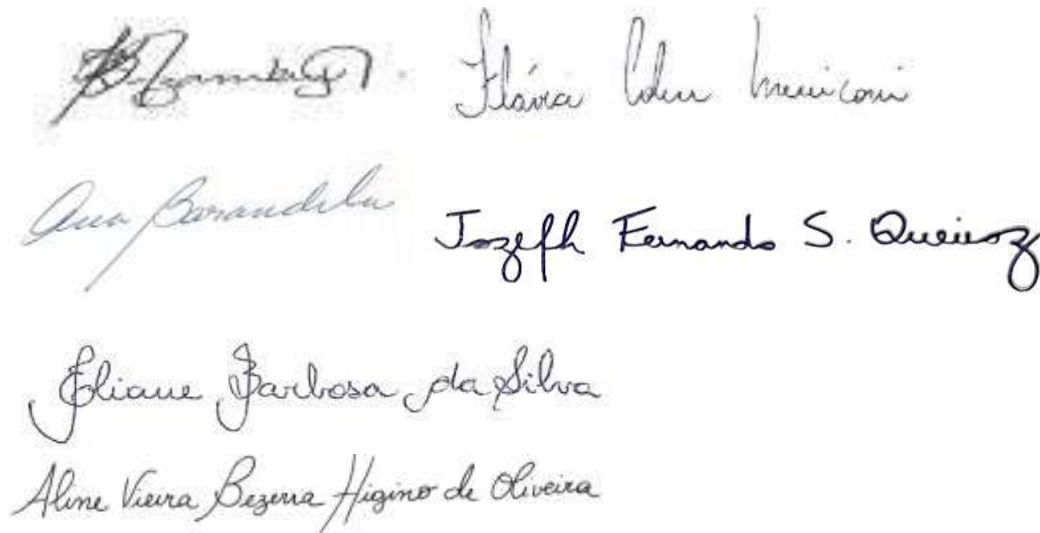 Flávia Colen Meniconi
Ana
Jozefh Fernando S. Queiroz
Eliane Barbosa da Silva
Aline Vieira Bezerra Higino de Oliveira